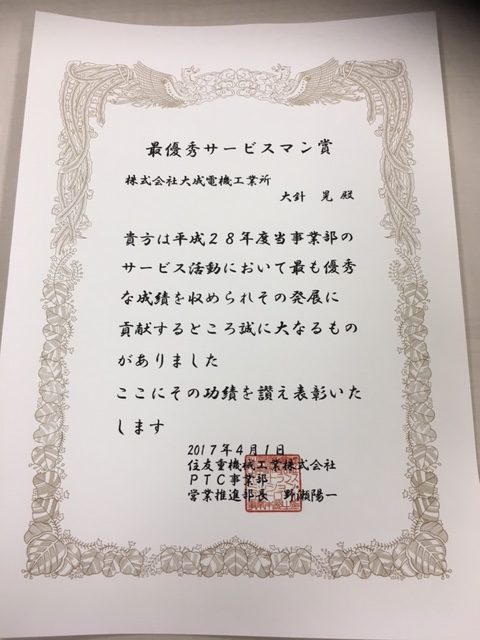 最優秀サービスマン賞
株式会社大成電機工業所
大針 晃 殿
貴方は平成２８年度当事業部の
サービス活動において最も優秀
な成績を収められその発展に
貢献するところ誠に大なるもの
がありました
ここにその功績を讃え表彰いた
します
２０１７年４月１日
住友重機械工業株式会社
ＰＴＣ事業部
営業推進部長 野瀬陽一